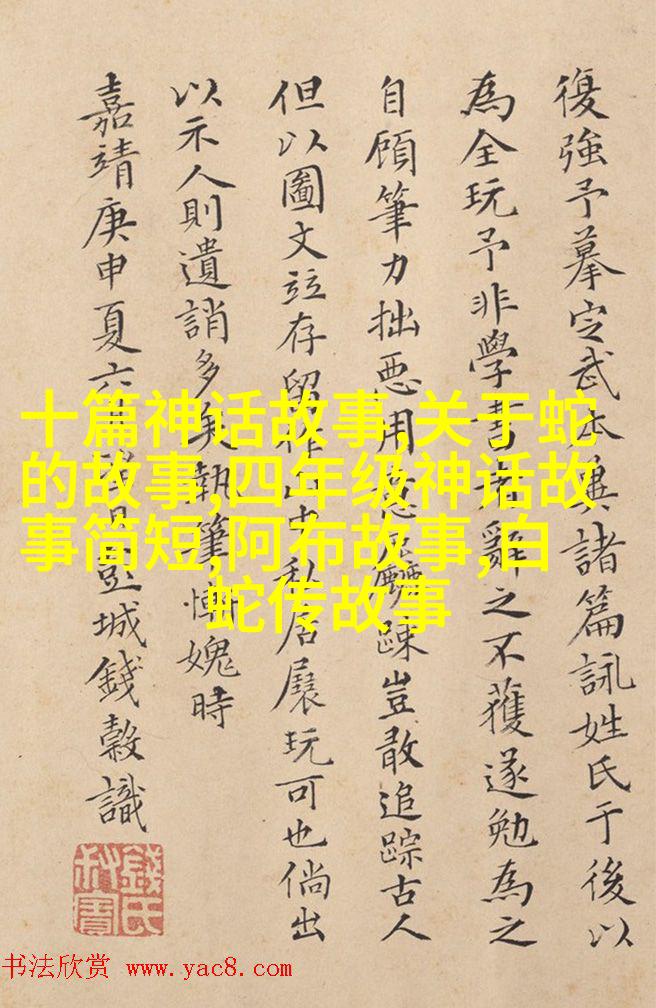 復強予摹定武本兼諸篇詠姓氏于後以
為全玩予非學書者辭之不獲遂勉為之
自顧筆力拙惡用踈豈敢追踪古人
但以圖文竝存留作山中私居展玩可也倘出
以示人則遺誚多矣執筆慚媿時
嘉靖庚申夏六城錢穀識
十篇神话故事,关于蛇
的故事,四年级神话故
事简短,阿布故事,白
蛇传故事
书法欣赏 www.yac8.com